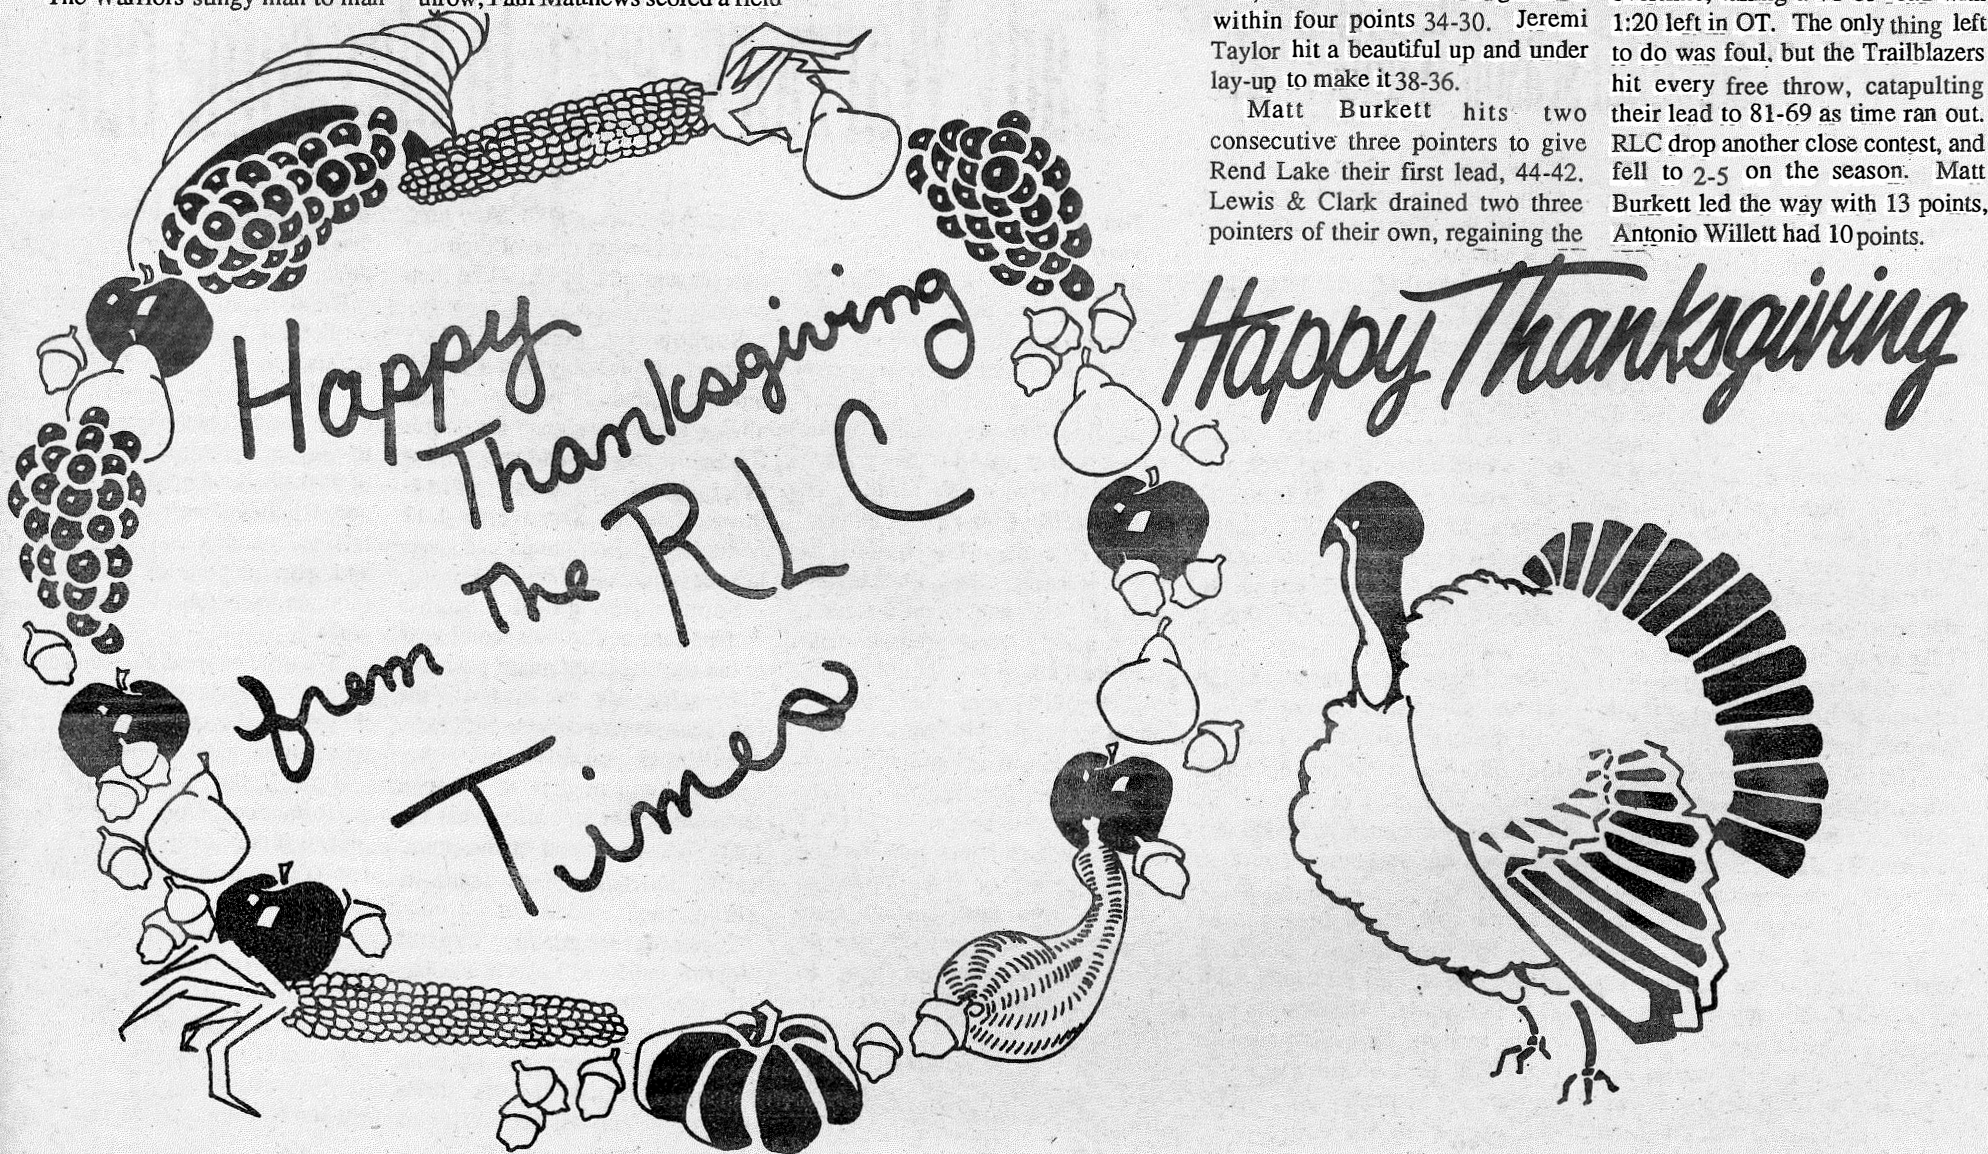 The Warriors stingy man to man
throw, Paul Matthews scored a field
within four points 34-30. Jeremi
Taylor hit a beautiful up and under
lay-up to make it 38-36.
Matt Burkett hits two
consecutive three pointers to give
Rend Lake their first lead, 44-42.
Lewis & Clark drained two three
pointers of their own, regaining the
1:20 left in OT. The only thing left
to do was foul, but the Trailblazers
hit every free throw, catapulting
their lead to 81-69 as time ran out.
RLC drop another close contest, and
fell to 2-5 on the season. Matt
Burkett led the way with 13 points,
Antonio Willett had 10 points.
Happy
Thanksgiving
from the RLC
Times
Happy Thanksgiving